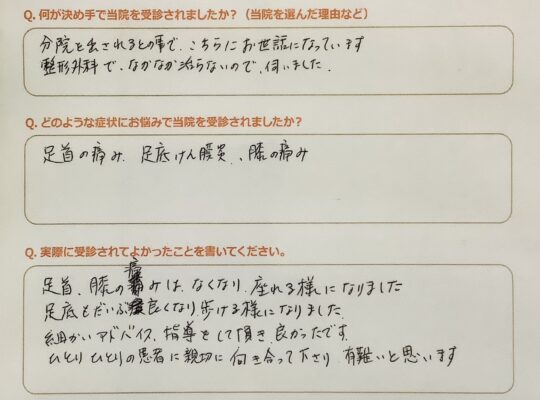 Q. 何が決め手で当院を受診されましたか？（当院を選んだ理由など）
分院を出されるとの事で、こちらにお世話になっています
整形外科で、なかなか治らないので、伺いました.
Q. どのような症状にお悩みで当院を受診されましたか？
足首の痛み、足底けん膜炎、膝の痛み
Q. 実際に受診されてよかったことを書いてください。
足首、膝の痛みは、なくなり、座れる様になりました
足底もだいぶ良くなり、歩ける様になりました.
細かいアドバイス、指導をして頂き、良かったです.
ひとりひとりの患者に親切に向き合って下さり、有難いと思います